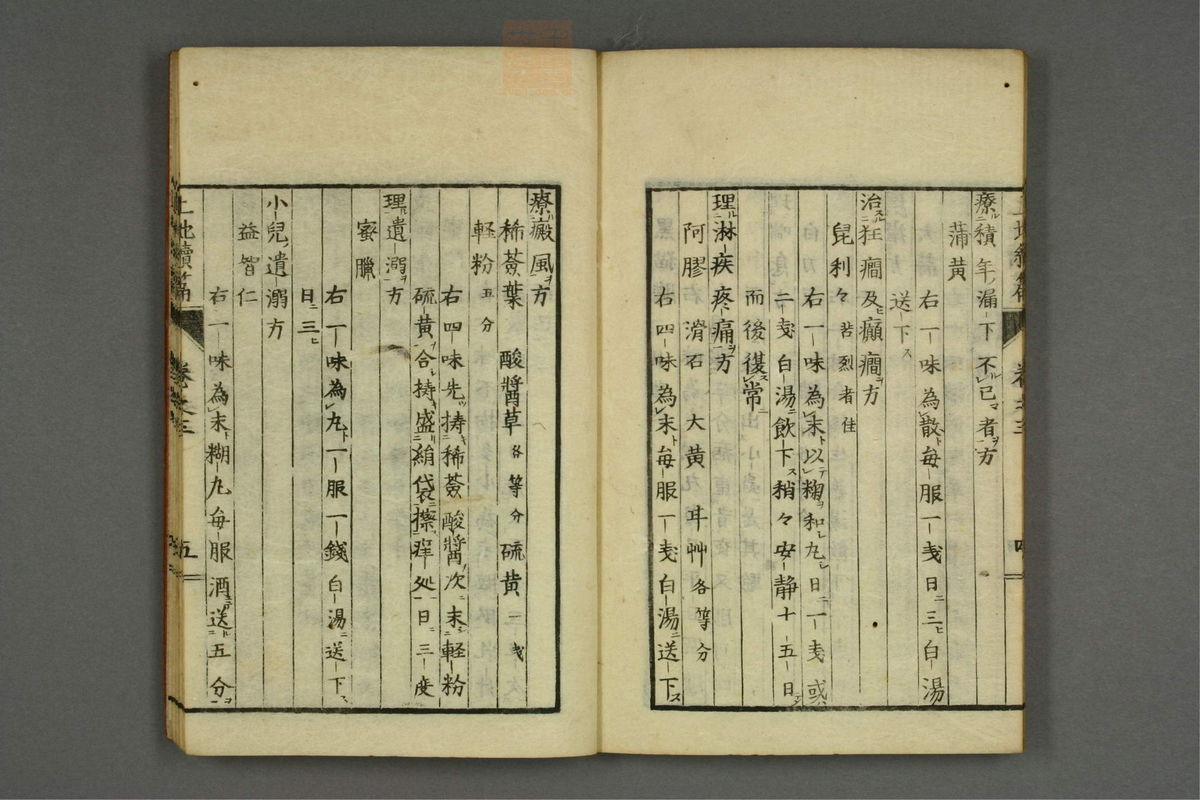 療積年漏下不已者方
蒲黄
右一味為散毎服一戔日三白湯
送下
治狂癎及癲癎方
皃利々 苦烈者佳
右一味為末以糊和丸日一戔或
二戔白湯飲下稍々安静十五日
而後復常
理淋疾疼痛方
阿膠 滑石 大黄 耳艸 各等分
右四味為末毎服一戔白湯送下
療癜風方
稀薟葉 酸醬草 各等分 硫黄 二戔
軽粉 五分
右四味先擣稀薟酸醬次末軽粉
硫黄合擣盛絹袋擦痒処一日三度
理遺溺方
蜜臘
右一味為丸一服一錢白湯送下
日三
小兒遺溺方
益智仁
右一味為末糊丸毎服酒送五分
土地續篇 卷之三 五